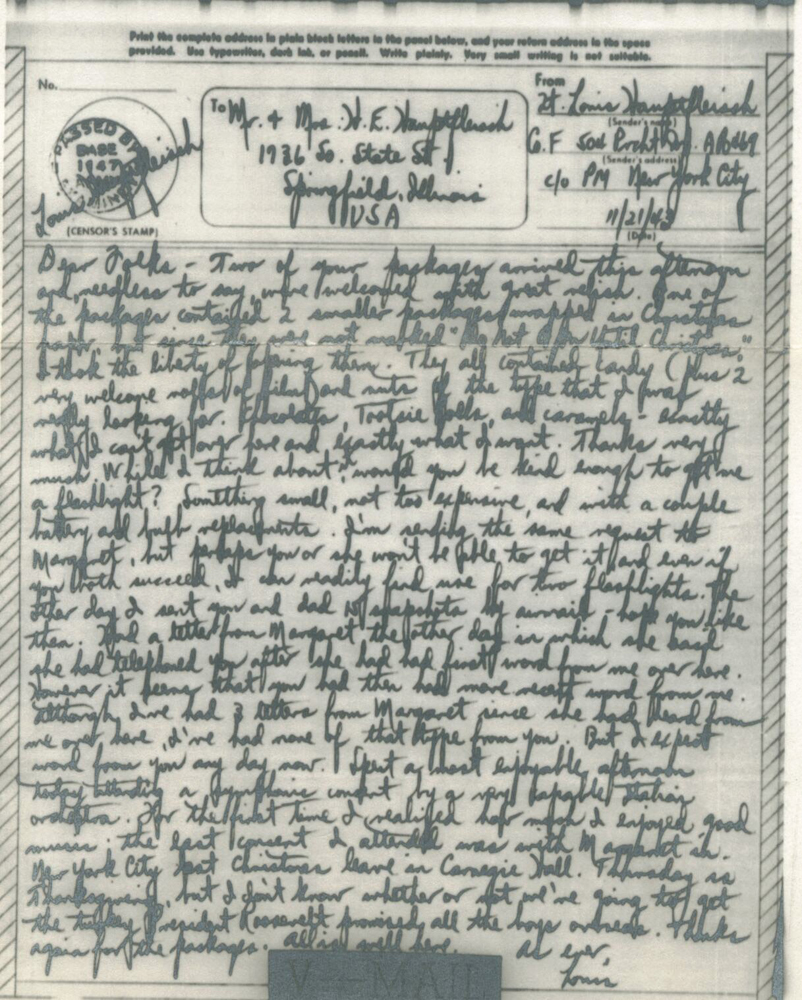 Print the complete address in plain block letters in the panel below, and your return address in the space
provided. Use typewriter, dark ink, or pencil. Write plainly. Very small writing is not suitable.
No.
PASSED BY
BASE
1147
ARMY EXAMINER
Louis Hauptfleisch
(CENSOR'S STAMP)
To
Mr. & Mrs. W. E. Hauptfleisch
1936 So. State St.
Springfield, Illinois
USA
From
Lt. Louis Hauptfleisch
(Sender's name)
Co. F 504 Prcht Inf. APO 469
(Sender's address)
c/o PM New York City
11/21/43
(Date)
Dear Folks - Two of your packages arrived this afternoon
and, needless to say, were welcomed with great relish. One of
the packages contained 2 smaller packages wrapped in Christmas
paper, but since they were not marked "Do Not Open Until Christmas,"
I took the liberty of opening them. They all contained candy (plus 2
very welcome rolls of film) and nuts of the type that I was
really looking for. Chocolates, Tootsie Rolls, and caramels - exactly
what I can't get over here and exactly what I want. Thanks very
much. While I think about it, would you be kind enough to get me
a flashlight? Something small, not too expensive, and with a couple
battery and bulb replacements. I'm sending the same request to
Margaret, but perhaps you or she won't be able to get it and even if
you both succeed, I can readily find use for two flashlights. The
other day I sent you and dad snapshots by airmail - hope you like
them. Had a letter from Margaret the other day in which she said
she had telephoned you after she had had first word from me over here.
However it seems that you had then had more recent word from me.
Although I've had 3 letters from Margaret since she had heard from
me over here, I've had none of that type from you. But I expect
word from you any day now. Spent a most enjoyable afternoon
today attending a symphonic concert by a very capable Italian
orchestra. For the first time I realized how much I enjoyed good
music. The last concert I attended was with Margaret in
New York City last Christmas leave in Carnegie Hall. Thursday is
Thanksgiving, but I don't know whether or not we're going to get
the turkey President Roosevelt promised all the boys overseas. Thanks
again for the packages. All is well here. As ever,
Louis
V - MAIL